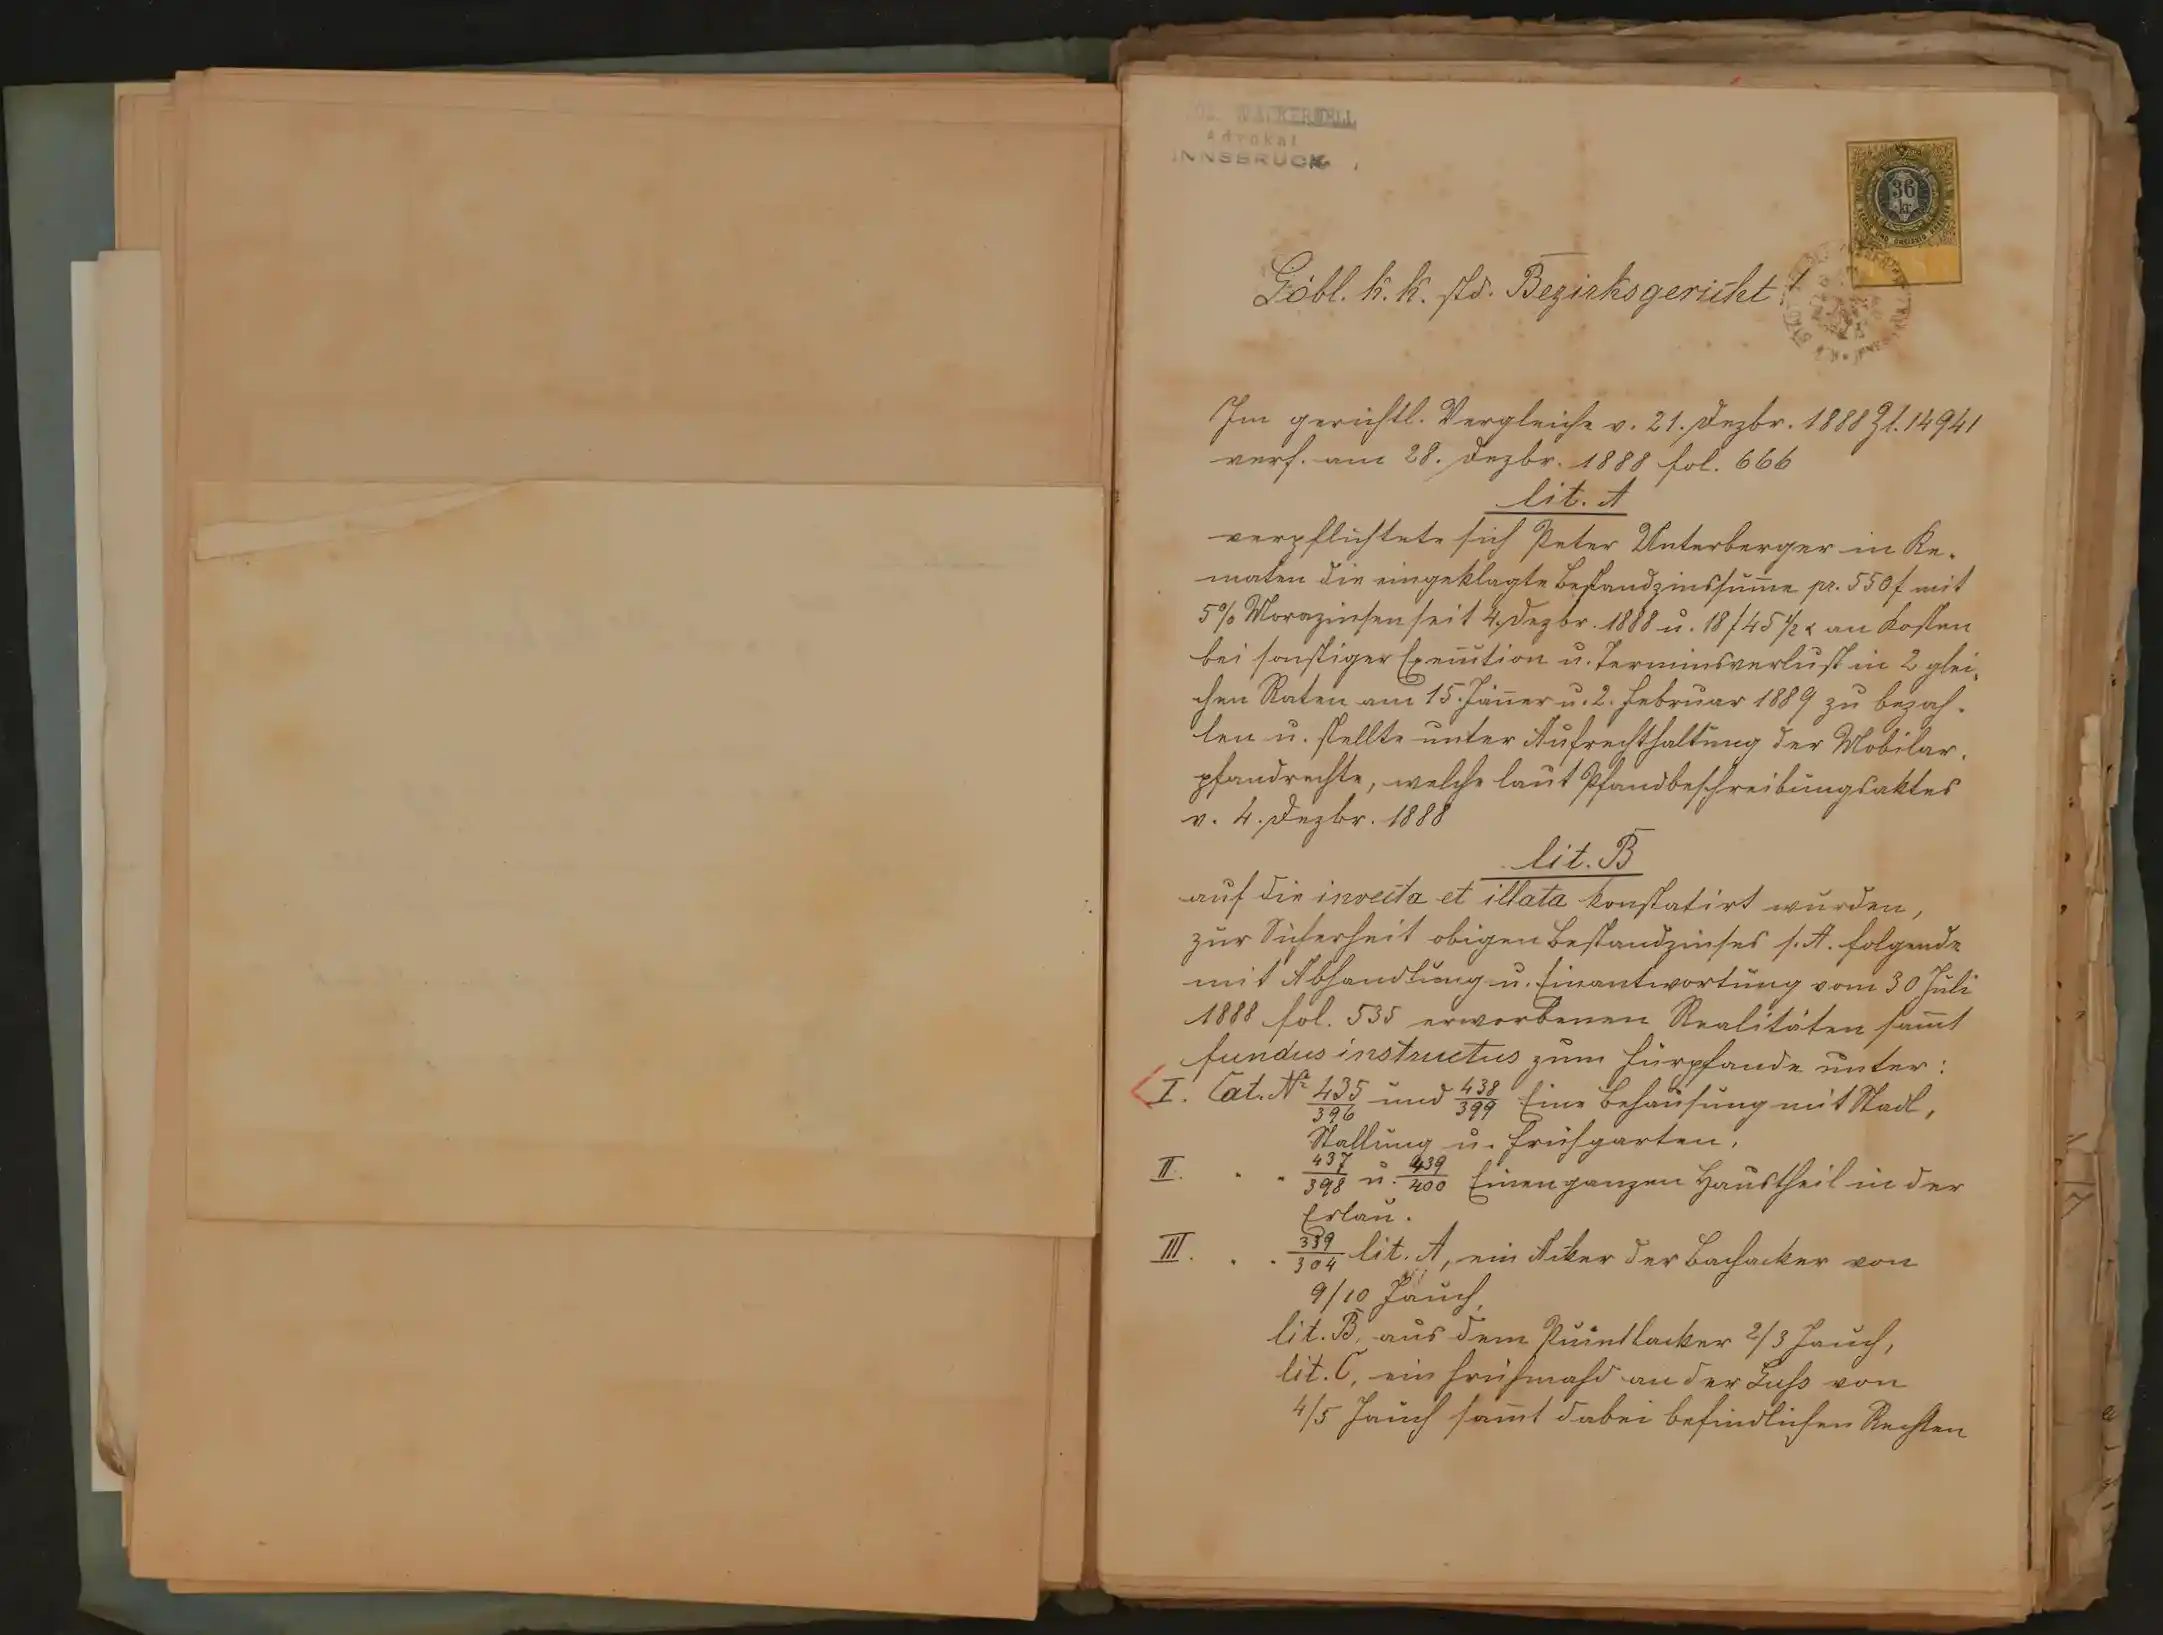 WACKERNELL
Advokat
INNSBRUCK
36
kr
Löbl. k. k. std. Bezirksgericht!
Im gerichtl. Vergleiche v. 21. Dezbr. 1888 Zl. 14941
verf. am 28. Dezbr. 1888 fol. 666
lit. A
verpflichtete sich Peter Unterberger in Ke-
maten die eingeklagte Bestandzinssume pr. 550 f mit
5% Morazinsen seit 4. Dezbr. 1888 u. 18 f 45 1/2 x an Kosten
bei sonstiger Execution u. Terminsverlust in 2 glei-
chen Raten am 15. Jäner u. 2. Februar 1889 zu bezah-
len u. stellte unter Aufrechthaltung der Mobilar-
pfandrechte, welche laut Pfandbeschreibungsaktes
v. 4. Dezbr. 1888
lit. B
auf die invecta et illata konstatirt wurden,
zur Sicherheit obigen Bestandzinses s. A. folgende
mit Abhandlung u. Einantwortung vom 30 Juli
1888 fol. 535 erworbenen Realitäten samt
fundus instructus zum Fürpfande unter:
I. Cat. No 435/396 und 438/399 Eine Behausung mit Stadl,
Stallung u. Frühgarten.
II. " " 437/398 u. 439/400 Einen ganzen Haustheil in der
Erlau.
III. " " 339/304 lit. A, ein Acker der Bachacker von
9/10 Jauch,
lit. B, aus dem Puintlacker 2/3 Jauch,
lit. C, ein Frühmahd an der Luss von
4/5 Jauch samt dabei befindlichen Rechten